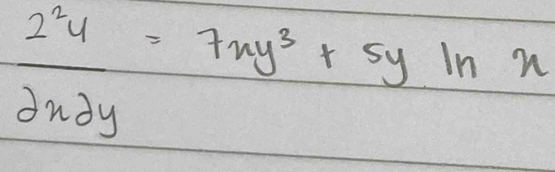 ∂²u/∂x∂y = 7xy³ + 5y ln x